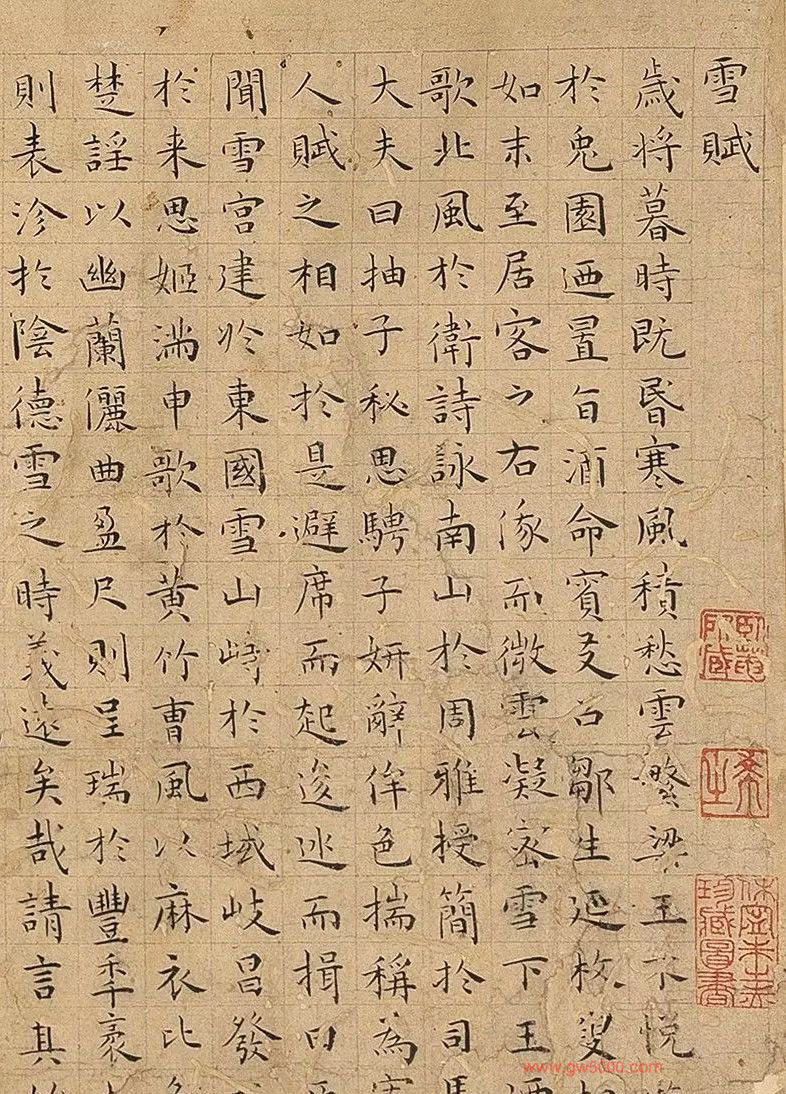 雪賦
歲将暮時既昏寒風積愁雲繁梁王不悅
於兔園迺置旨酒命賓友召鄒生延枚叟
如末至居客之右俄而微雲凝密雪下王
歌北風於衛詩詠南山於周雅授簡於司
大夫曰抽子秘思騁子妍辭侔色揣稱為
人賦之相如於是避席而起逡巡而揖曰
聞雪宮建於東國雪山峙於西域岐昌發
於来思姬滿申歌於黃竹曹風以麻衣比
楚謡以幽蘭儷曲盈尺則呈瑞於豐年袤
則表沴於陰德雪之時義遠矣哉請言其
卧菴所藏
休寧朱之赤珍藏圖書
www.gw5000.com